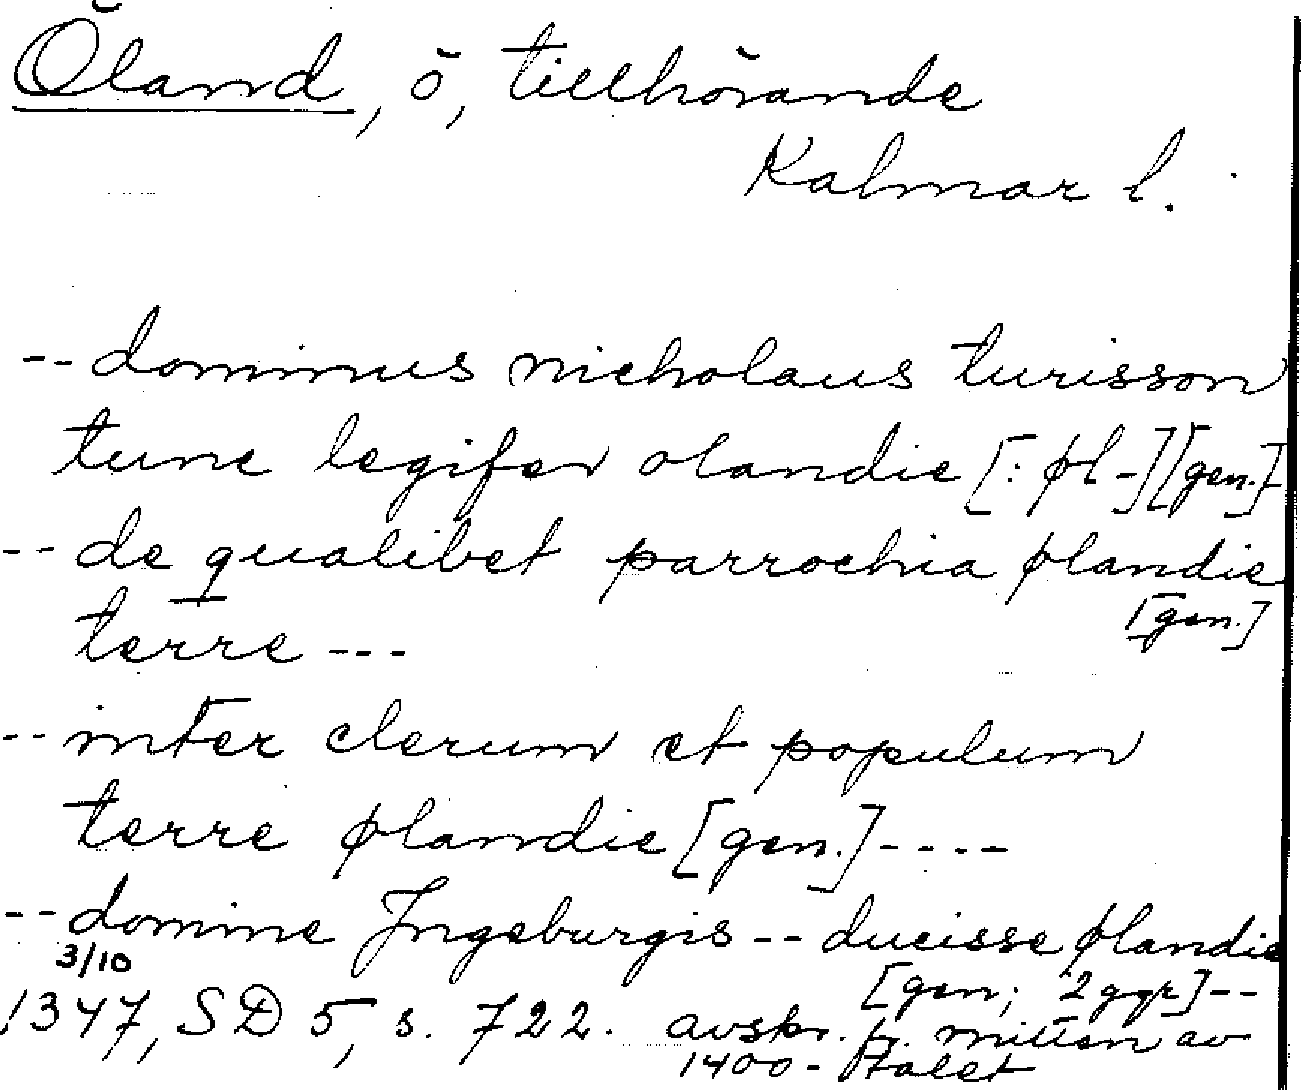 Öland, ö, tillhörande
Kalmar l.
-- dominus nicholaus turisson
tunc legifer olandie [: øl-] [gen.]
-- de qualibet parrochia ølandie
[gen.]
terre ---
-- inter clerum et populum
terre ølandie [gen.] ----
-- domine Ingeburgis -- ducisse ølandie
[gen; 2 ggr] --
3/10
1347, SD 5, s. 722. avskr. fr. mitten av
1400-talet